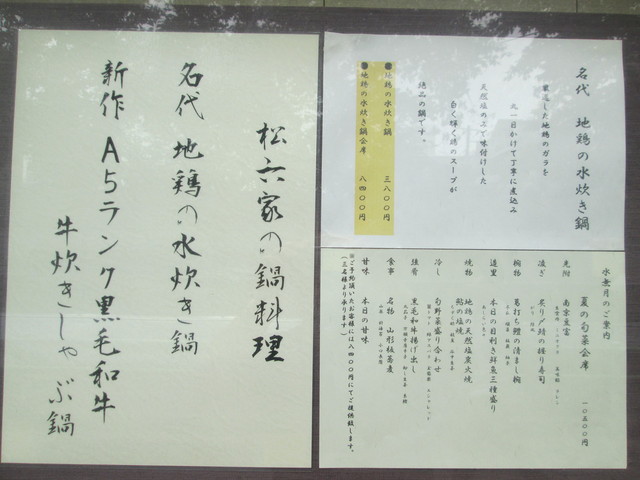 松六家の鍋料理
名代 地鶏の水炊き鍋
新作 A5ランク黒毛和牛
牛炊きしゃぶ鍋
名代 地鶏の水炊き鍋
厳選した地鶏のガラを
丸一日かけて丁寧に煮込み
天然塩のみで味付けした
白く輝く鶏のスープが
絶品の鍋です。
●地鶏の水炊き鍋 三八〇〇円
●地鶏の水炊き鍋会席 八四〇〇円
水無月のご案内
夏の旬菜会席 一〇五〇〇円
先附 南京豆富
凌ぎ 炙り〆鯖の棒寿司
椀物 葛打ち鱧の清まし椀
造里 本日の目利き鮮魚三種盛り
あしらい
焼物 地鶏の天然塩炭火焼
鮎の塩焼
冷し 旬野菜盛り合わせ
強肴 黒毛和牛揚げ出し
食事 名物 山形板蕎麦
甘味 本日の甘味
※ご予約頂いたお客様には八四〇〇円にてご提供致します。
(二名様より承ります)